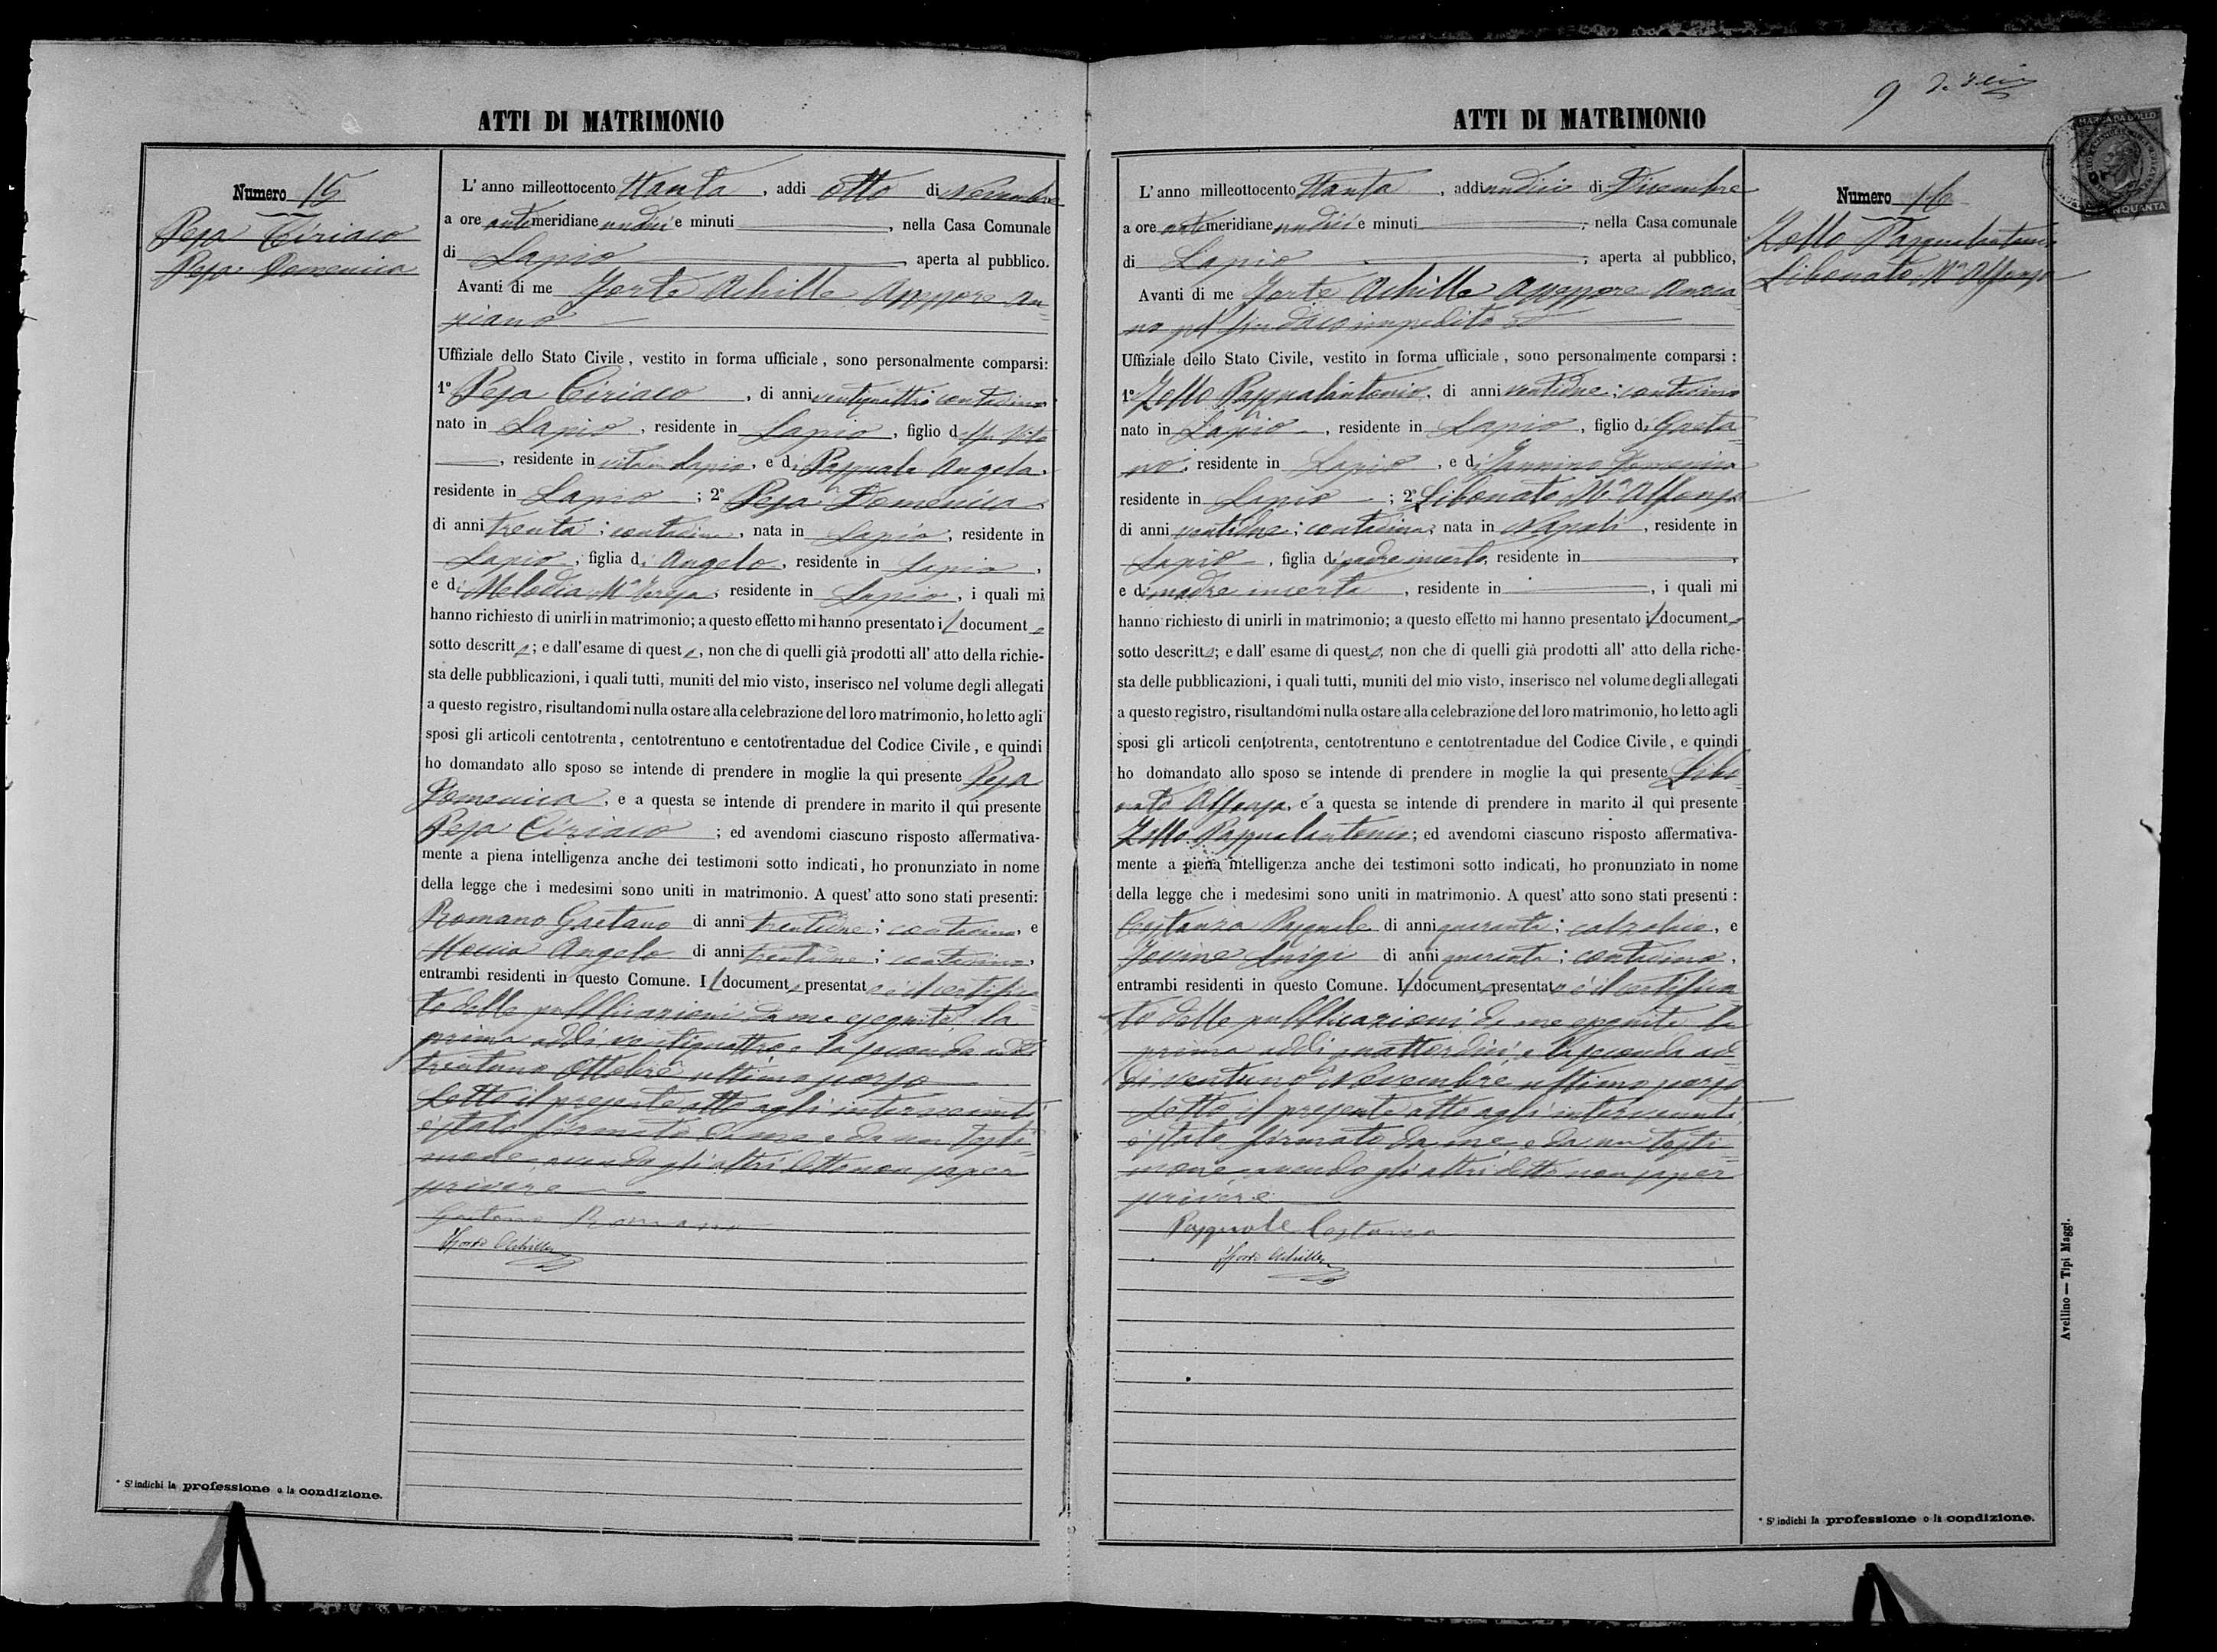 ATTI DI MATRIMONIO
Numero 15
Pesa Ciriaco
Pesa Domenica
L' anno milleottocento ttanta , addi otto di Novembre
a ore antimeridiane undici e minuti , nella Casa Comunale
di Lapio , aperta al pubblico.
Avanti di me Forte Achille Assessore An=
ziano
Uffiziale dello Stato Civile , vestito in forma ufficiale , sono personalmente comparsi:
1º Pesa Ciriaco , di anni ventiquattro contadino
nato in Lapio , residente in Lapio , figlio del fu Vito
, residente in vita in Lapio , e di Pasquale Angela ,
residente in Lapio ; 2º Pesa Domenica
di anni trenta ; contadina , nata in Lapio , residente in
Lapio , figlia di Angelo , residente in Lapio ,
e di Melodia Mª Teresa , residente in Lapio , i quali mi
hanno richiesto di unirli in matrimonio; a questo effetto mi hanno presentato il documento
sotto descritto ; e dall'esame di questo , non che di quelli già prodotti all' atto della richie-
sta delle pubblicazioni, i quali tutti, muniti del mio visto, inserisco nel volume degli allegati
a questo registro, risultandomi nulla ostare alla celebrazione del loro matrimonio, ho letto agli
sposi gli articoli centotrenta, centotrentuno e centotrentadue del Codice Civile , e quindi
ho domandato allo sposo se intende di prendere in moglie la qui presente Pesa
Domenica , e a questa se intende di prendere in marito il qui presente
Pesa Ciriaco ; ed avendomi ciascuno risposto affermativa-
mente a piena intelligenza anche dei testimoni sotto indicati, ho pronunziato in nome
della legge che i medesimi sono uniti in matrimonio. A quest' atto sono stati presenti:
Romano Gaetano di anni trentadue ; contadino , e
Moccia Angelo di anni trentadue ; contadino ,
entrambi residenti in questo Comune. Il documento presentato è il certifica=
to delle pubblicazioni da me eseguite la
prima addì ventiquattro e la seconda addì
trentuno Ottobre ultimo scorso
Letto il presente atto agli intervenuti
è stato firmato da me e da un testi=
mone avendo gli altri detto non saper
scrivere
Gaetano Romano
Forte Achille
* S' indichi la professione o la condizione.
ATTI DI MATRIMONIO
9
MARCA DA BOLLO
Numero 16
Zollo Pasqualantonio
Libonato Mª Alfonsa
L' anno milleottocento ttanta , addi undici di Dicembre
a ore antimeridiane undici e minuti , nella Casa comunale
di Lapio , aperta al pubblico,
Avanti di me Forte Achille Assessore Anzia
no pel Sindaco impedito
Uffiziale dello Stato Civile, vestito in forma ufficiale , sono personalmente comparsi :
1º Zollo Pasqualantonio, di anni ventidue ; contadino
nato in Lapio , residente in Lapio , figlio di Gaeta=
no , residente in Lapio , e di Jannino Domenica
residente in Lapio ; 2º Libonato Mª Alfonsa
di anni ventidue ; contadina , nata in Napoli , residente in
Lapio , figlia di padre incerto, residente in ,
e di madre incerta , residente in , i quali mi
hanno richiesto di unirli in matrimonio; a questo effetto mi hanno presentato il documento
sotto descritto ; e dall' esame di questo , non che di quelli già prodotti all' atto della riche-
sta delle pubblicazioni, i quali tutti, muniti del mio visto, inserisco nel volume degli allegati
a questo registro, risultandomi nulla ostare alla celebrazione del loro matrimonio, ho letto agli
sposi gli articoli centotrenta, centotrentuno e centotrentadue del Codice Civile , e quindi
ho domandato allo sposo se intende di prendere in moglie la qui presente Libo
nato Alfonsa, e a questa se intende di prendere in marito il qui presente
Zollo Pasqualantonio ; ed avendomi ciascuno risposto affermativa-
mente a piena intelligenza anche dei testimoni sotto indicati, ho pronunziato in nome
della legge che i medesimi sono uniti in matrimonio. A quest' atto sono stati presenti :
Costanza Pasquale di anni quaranta ; calzolaio , e
Jovine Luigi di anni quaranta ; contadino ,
entrambi residenti in questo Comune. Il documento presentato è il certifica=
to delle pubblicazioni da me eseguite la
prima addì quattordici e la seconda ad=
dì ventuno Novembre ultimo scorso
Letto il presente atto agli intervenuti
è stato firmato da me e da un testi=
mone avendo gli altri detto non saper
scrivere
Pasquale Costanza
Forte Achille
* S' indichi la professione o la condizione.
Avellino — Tipi Maggi.